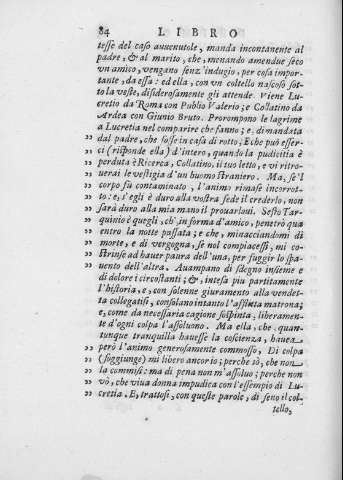 84 LIBRO
tesse del caso auuenutole, manda incontanente al
padre, & al marito, che, menando amendue seco
vn'amico, vengano senz'indugio, per cosa impor-
tante, da essa: ed ella, con vn coltello nascoso sot-
to la veste, disiderosamente gli attende. Viene Lu-
cretio da Roma con Publio Valerio; e Collatino da
Ardea con Giunio Bruto. Prorompono le lagrime
,, a Lucretia nel comparire che fanno; e, dimandata
,, dal padre, che fosse in casa di rotto, E che può esser-
,, ci (risponde ella) d'intero, quando la pudicitia è
,, perduta è Ricerca, Collatino, il tuo letto, e vi ritro-
,, uerai le vestigia d'un huomo straniero. Ma, se'l
,, corpo fù contaminato, l'animo rimase incorrot-
,, to: e, s'egli è duro alla vostra fede il crederlo, non
,, sarà duro alla mia mano il prouarloui. Sesto Tar-
,, quinio è quegli, ch'in forma d'amico, penetrò qua
,, entro la notte passata; e che, minacciandomi di
,, morte, e di vergogna, se nol compiacessi, mi co-
,, strinse ad hauer paura dell'una, per fuggir lo spa-
,, uento dell'altra. Auampano di sdegno insieme e
di dolore i circostanti; &, intesa piu partitamente
l'historia, e, con solenne giuramento alla vendet-
ta collegatisi, consolano intanto l'afflitta matrona;
e, come da necessaria cagione sospinta, liberamen-
te d'ogni colpa l'assoluono. Ma ella, che, quan-
tunque tranquilla hauesse la coscienza, hauea
,, però l'animo generosamente commosso, Di colpa
,, (soggiunge) mi libero ancor io; perche sò, che non
,, la commisi: ma di pena non m'assoluo; perche non
,, vò, che viua donna impudica con l'essempio di Lu-
,, cretia. E, trattosi, con queste parole, di seno il col-
tello,